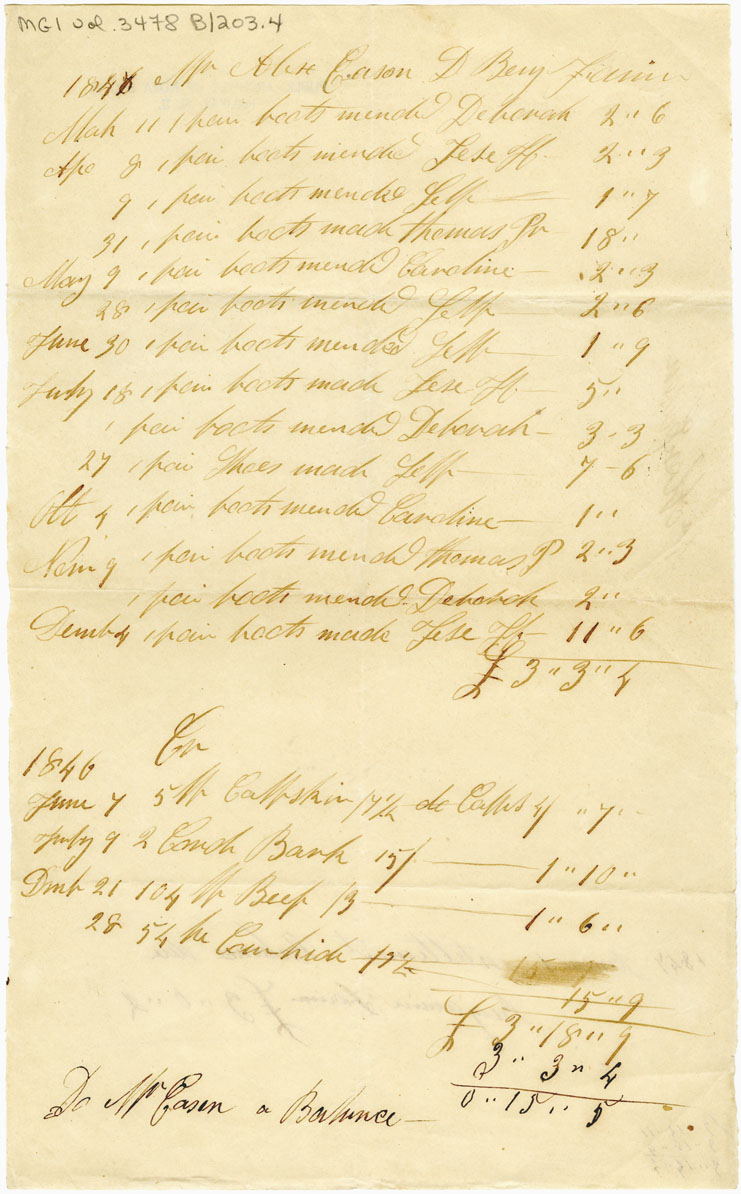 MG1 vol. 3478 B/203.4
1846 Mr Alex Eason D Benj
Mah 11 1 pair boots mended Deborah 2 " 6
Ape 8 1 pair boots mended Jese H - 2 " 3
9 1 pair boots mended Self - 1 " 7
31 1 pair boots made thomas Pr - 18 "
May 9 1 pair boots mended Caroline - 2 " 3
28 1 pair boots mended Self 2 " 6
June 30 1 pair boots mended Self - 1 " 9
July 18 1 pair boots made Jese H - 5 "
1 pair boots mended Deborah - 3 - 3
27 1 pair Shoes made Self - 7 - 6
Ott 4 1 pair boots mended Caroline - 1 "
Nem 9 1 pair boots mended thomas P 2 " 3
1 pair boots mended Deborah 2 "
Demb 4 1 pair boots made Jese H - 11 " 6
£ 3 " 3 " 4
Cr
1846
June 7 5 lb Calfskin /7½ do Calfs 4/ " 7 "
July 9 2 Cords Bark 15/ - 1 " 10 "
Dmb 21 104 lb Beef /3 - 1 " 6 "
28 54 lbs Cowhide /3½ 15
15 " 9
£ 3 " 18 " 9
3 " 3 " 4
Do Mr Eason a Ballance - 0 " 15 " 5